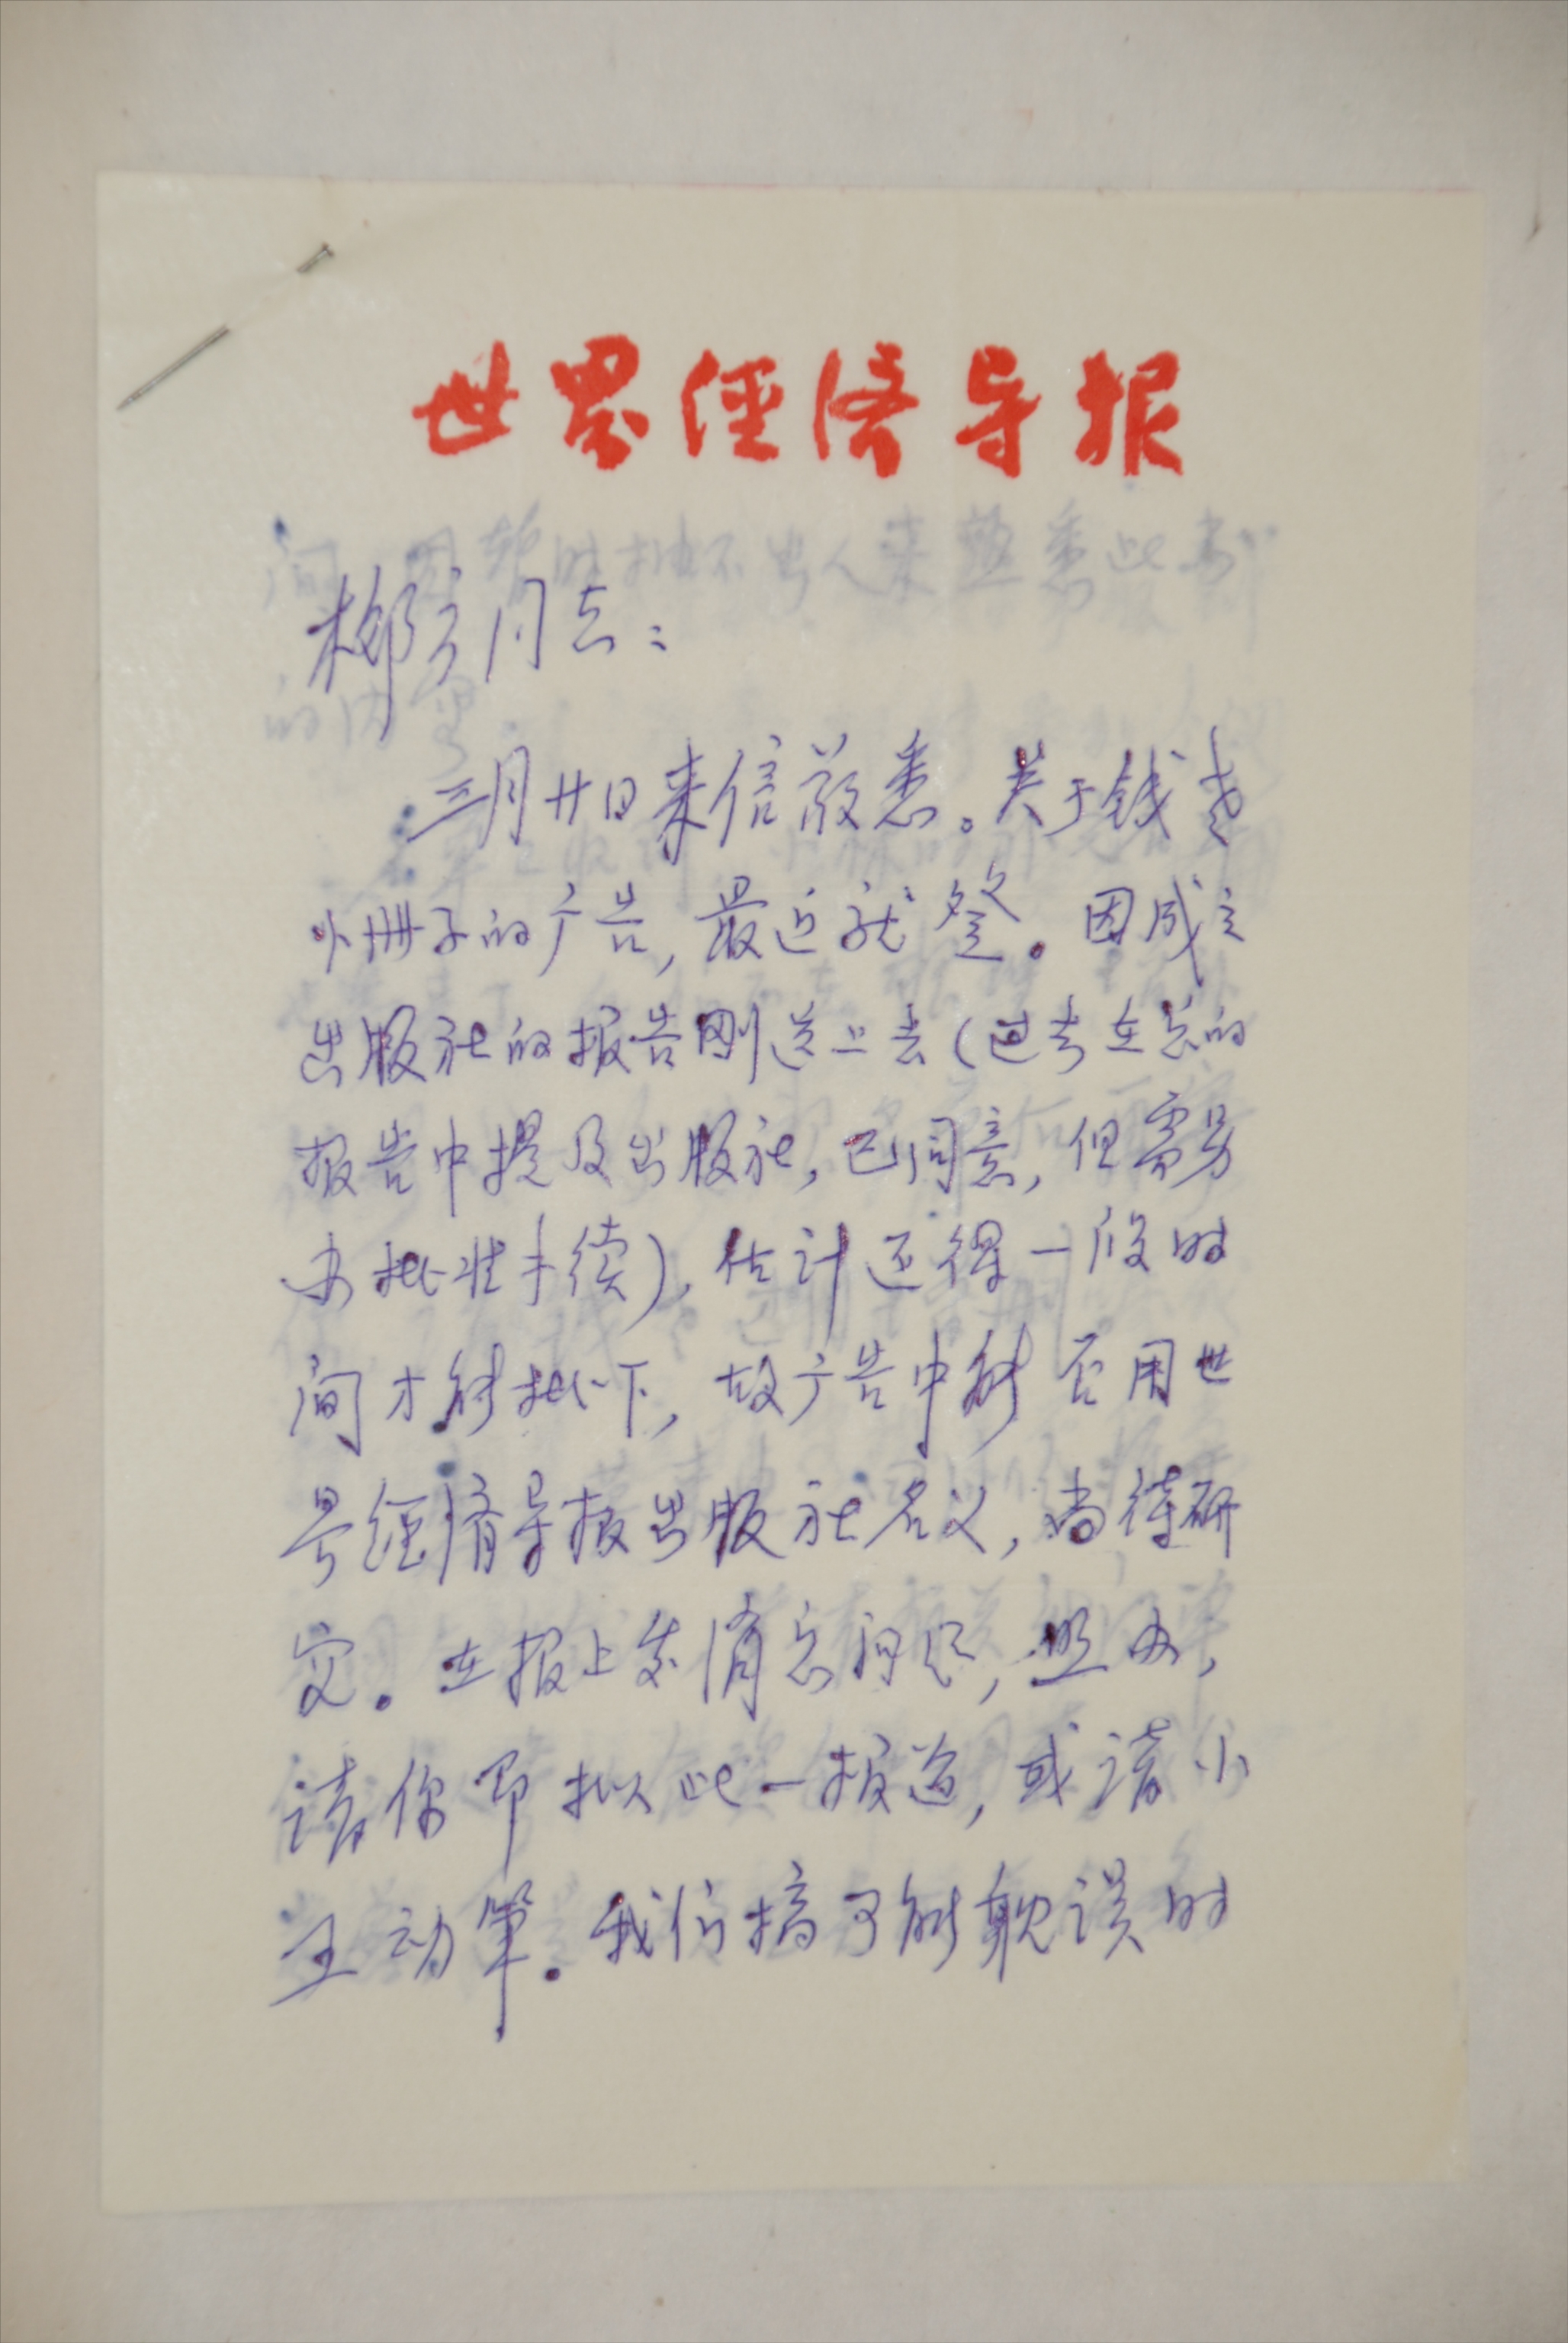 世界经济导报
柳方同志：
三月廿日来信敬悉。关于钱老
小册子的广告，最近就登。因成立
出版社的报告刚送上去（过去在总的
报告中提及出版社，已同意，但需另
办批准手续），估计还得一段时
间才能批下，故广告中能否用世
界经济导报出版社名义，尚待研
究。在报上发消息问题，照办，
请你即拟此一报道，或请小
王动笔。我们搞可能耽误时
间，因暂时抽不出人来熟悉此书
的内容